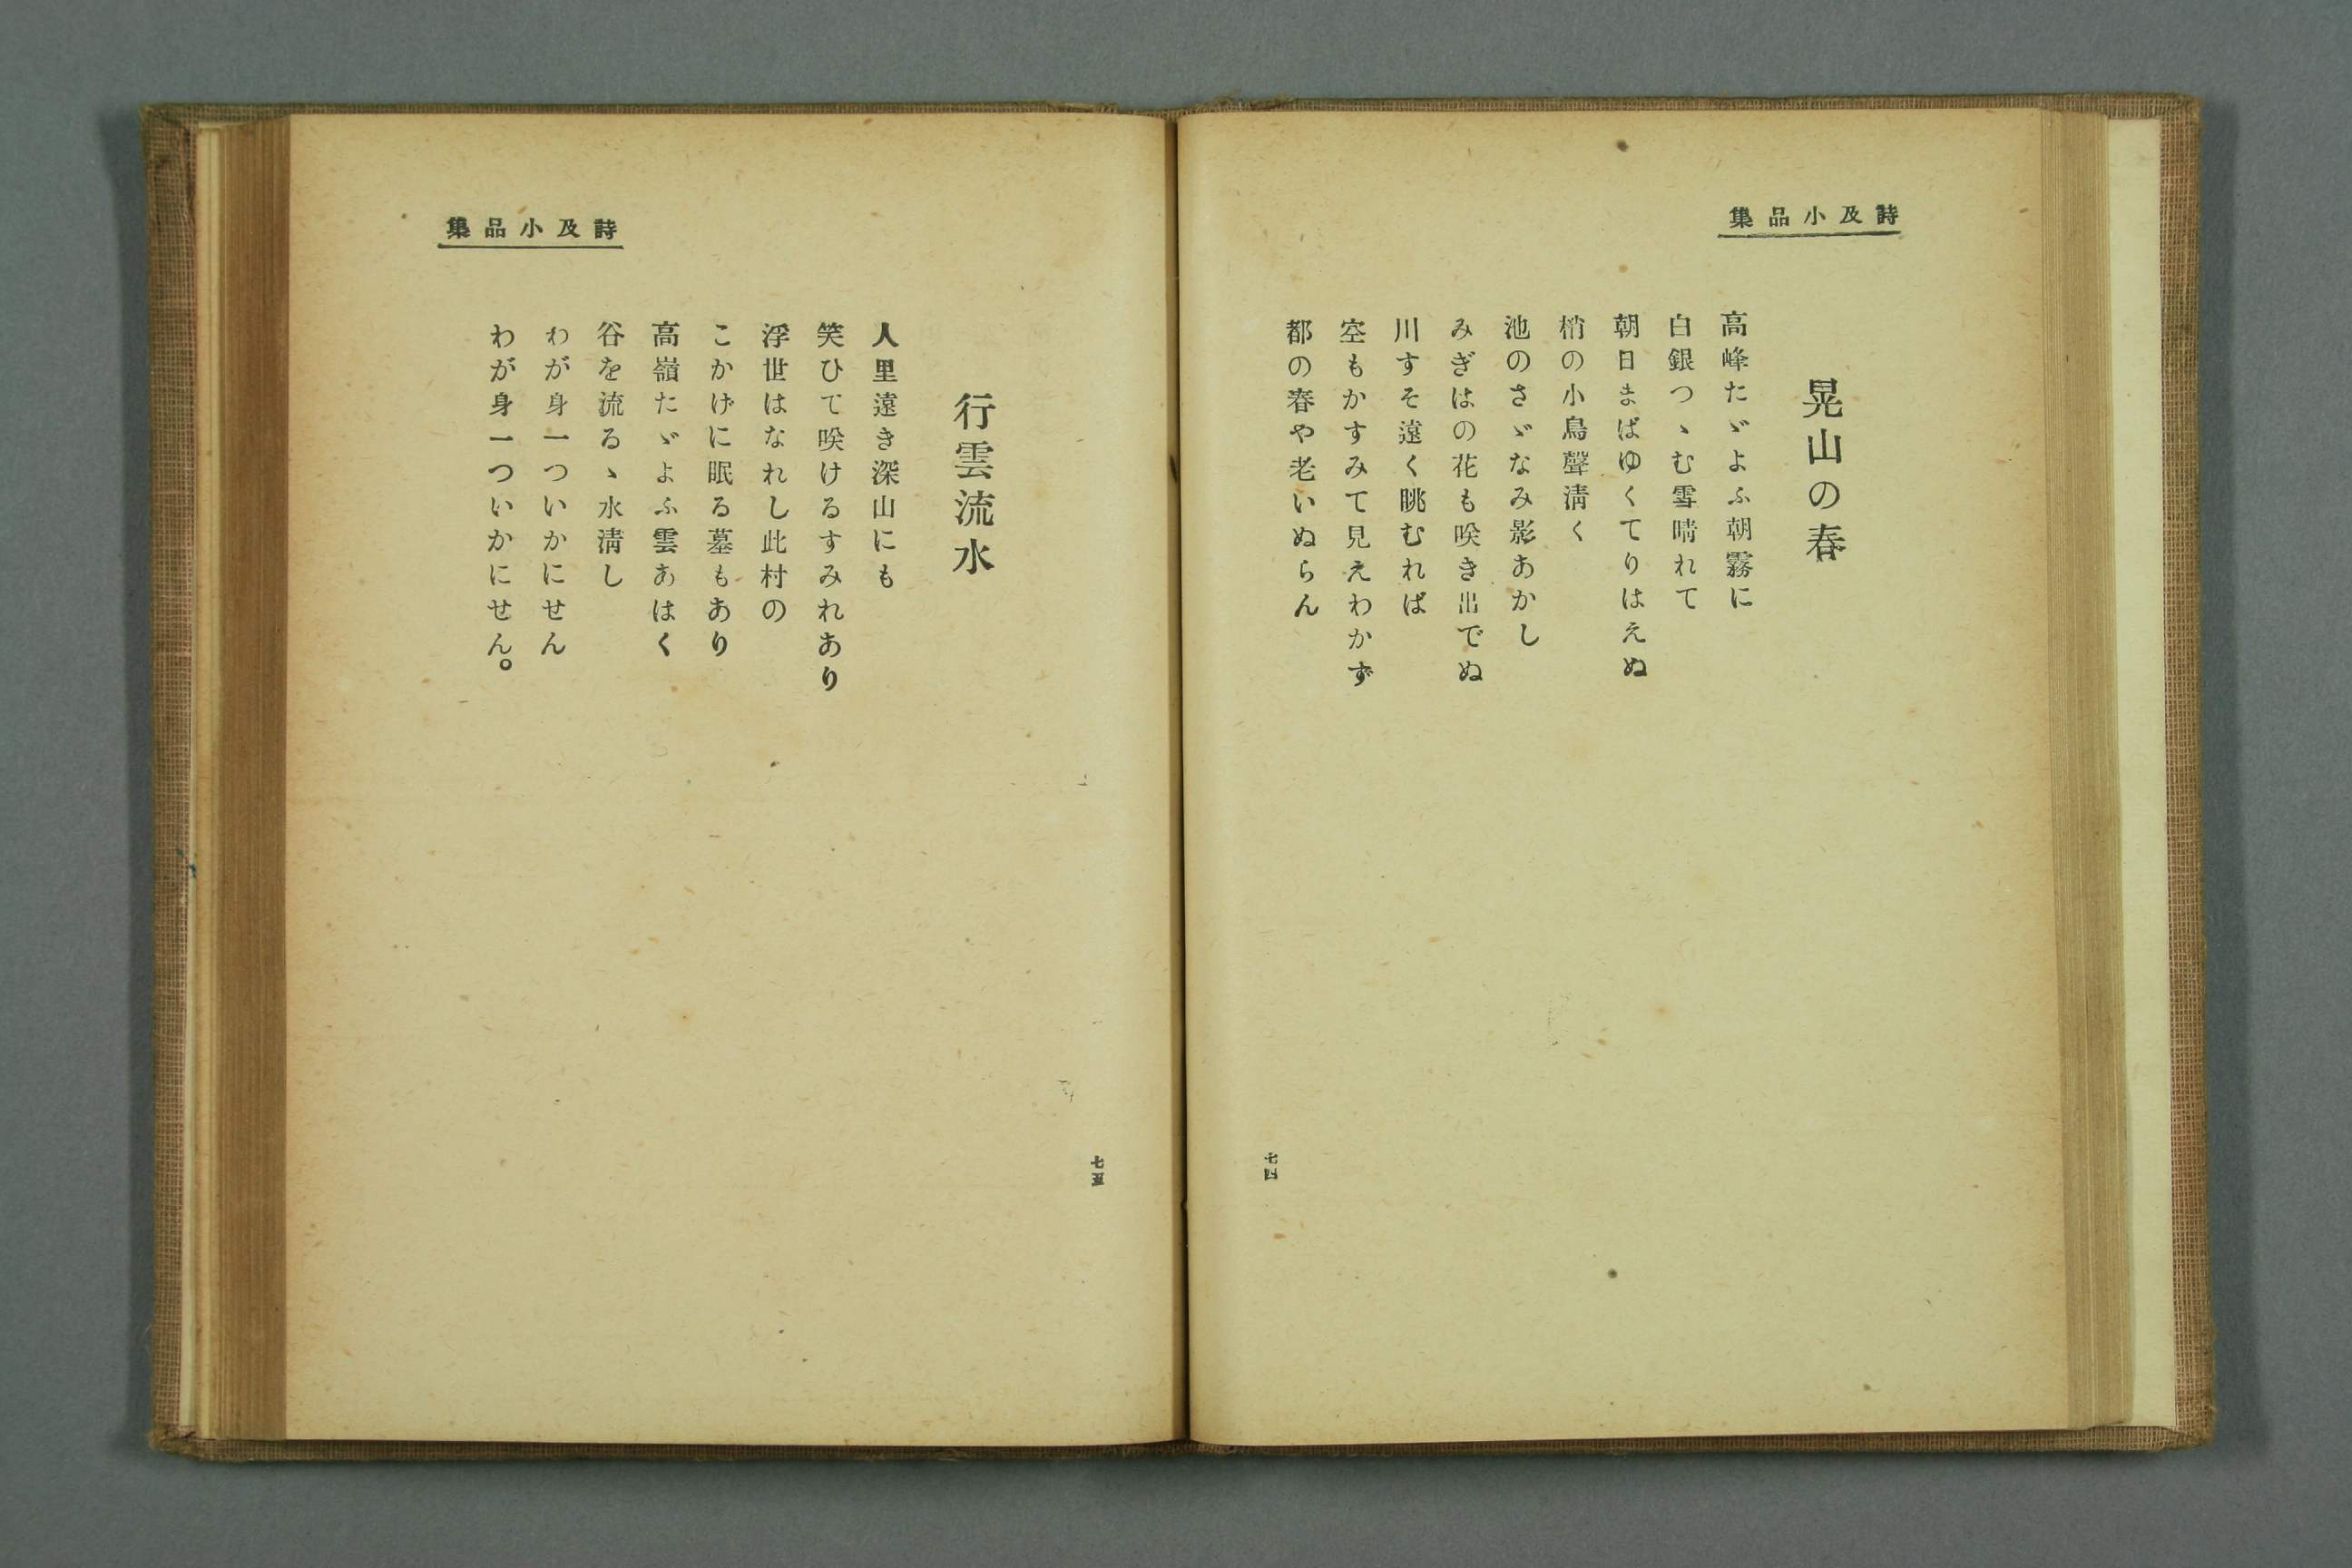 詩及小品集
晃山の春
高峰たゞよふ朝霧に
白銀つゝむ雪晴れて
朝日まばゆくてりはえぬ
梢の小鳥聲淸く
池のさゞなみ影あかし
みぎはの花も咲き出でぬ
川すそ遠く眺むれば
空もかすみて見えわかず
都の春や老いぬらん
七四
詩及小品集
行雲流水
人里遠き深山にも
笑ひて咲けるすみれあり
浮世はなれし此村の
こかげに眠る墓もあり
高嶺たゞよふ雲あはく
谷を流るゝ水淸し
わが身一ついかにせん
わが身一ついかにせん。
七五